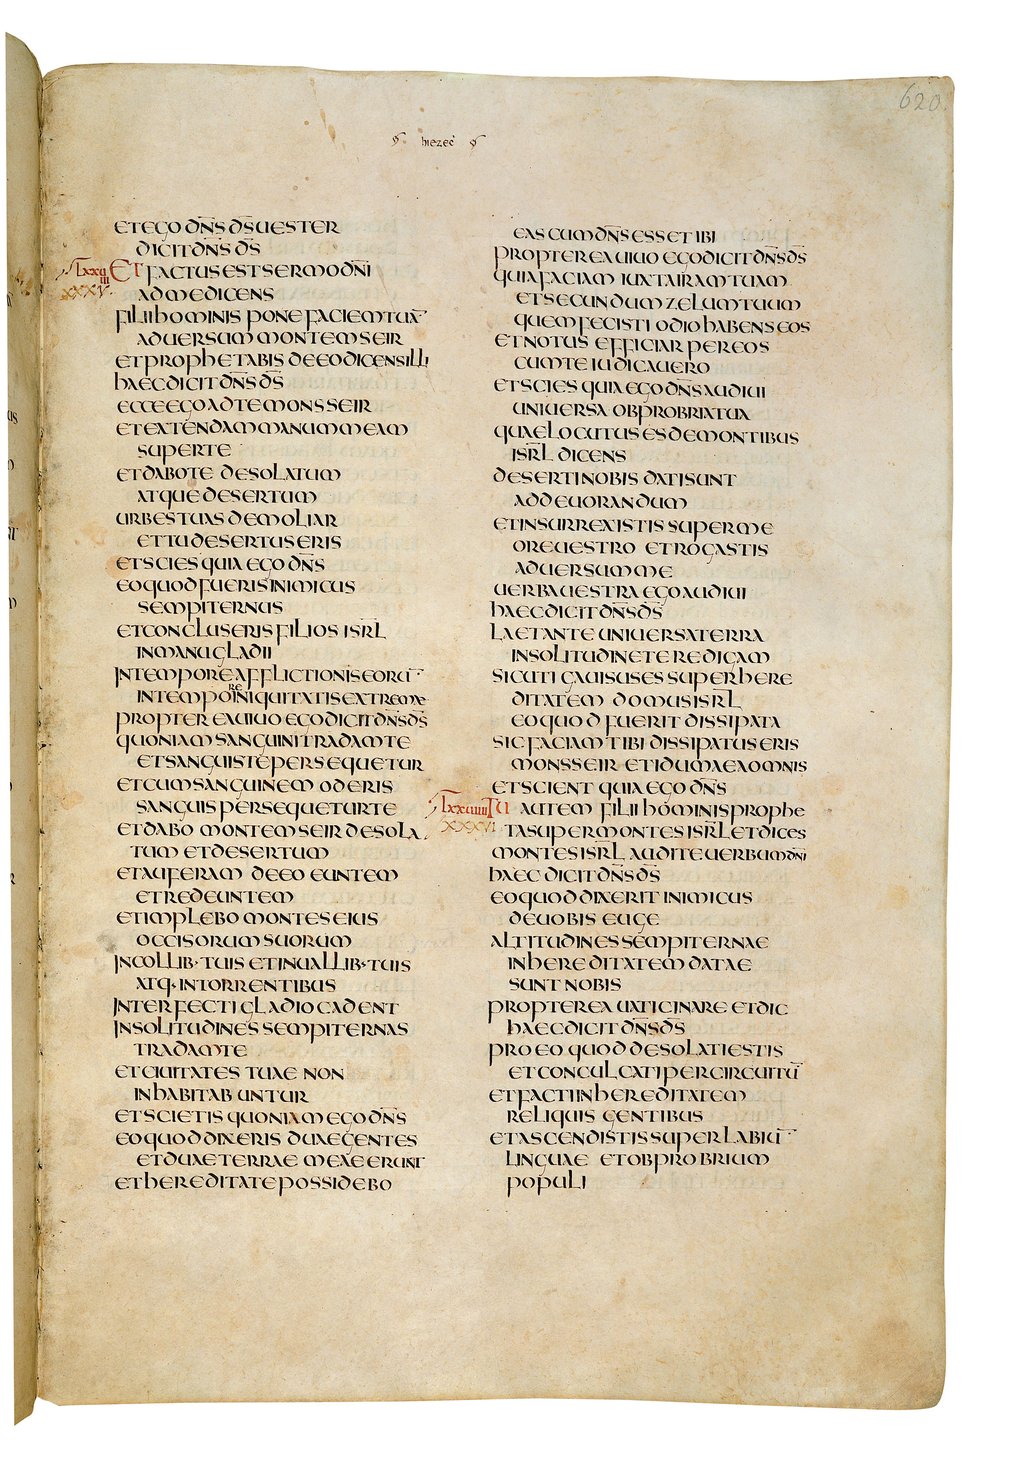 620.
hiezec
ET EGO DN̅S D̅S UESTER
DICIT DN̅S D̅S
LXXIII ET FACTUS EST SERMO DN̅I
XXXV. AD ME DICENS
FILII HOMINIS PONE FACIEM TUA̅
ADUERSUM MONTEM SEIR
ET PROPHETABIS DE EO DICENS ILLI
HAEC DICIT DN̅S D̅S
ECCE EGO AD TE MONS SEIR
ET EXTENDAM MANUM MEAM
SUPER TE
ET DABO TE DESOLATUM
ATQUE DESERTUM
URBES TUAS DEMOLIAR
ET TU DESERTUS ERIS
ET SCIES QUIA EGO DN̅S
EO QUOD FUERIS INIMICUS
SEMPITERNUS
ET CONCLUSERIS FILIOS ISR̅L
IN MANU GLADII
IN TEMPORE AFFLICTIONIS EORU̅
IN TEMPORE INIQUITATIS EXTREME
PROPTEREA UIUO EGO DICIT DN̅S D̅S
QUONIAM SANGUINI TRADAM TE
ET SANGUIS TE PERSEQUETUR
ET CUM SANGUINEM ODERIS
SANGUIS PERSEQUETUR TE
ET DABO MONTEM SEIR DESOLA
TUM ET DESERTUM
ET AUFERAM DE EO EUNTEM
ET REDEUNTEM
ET IMPLEBO MONTES EIUS
OCCISORUM SUORUM
IN COLLIB· TUIS ET IN UALLIB· TUIS
ATQ· IN TORRENTIBUS
INTERFECTI GLADIO CADENT
IN SOLITUDINES SEMPITERNAS
TRADAM TE
ET CIUITATES TUAE NON
INHABITABUNTUR
ET SCIETIS QUONIAM EGO DN̅S
EO QUOD DIXERIS DUAE GENTES
ET DUAE TERRAE MEAE ERUNT
ET HEREDITATE POSSIDEBO
EAS CUM DN̅S ESSET IBI
PROPTEREA UIUO EGO DICIT DN̅S D̅S
QUIA FACIAM IUXTA IRAM TUAM
ET SECUNDUM ZELUM TUUM
QUEM FECISTI ODIO HABENS EOS
ET NOTUS EFFICIAR PER EOS
CUM TE IUDICAUERO
ET SCIES QUIA EGO DN̅S AUDIUI
UNIUERSA OBPROBRIA TUA
QUAE LOCUTUS ES DE MONTIBUS
ISR̅L DICENS
DESERTI NOBIS DATI SUNT
AD DEUORANDUM
ET INSURREXISTIS SUPER ME
ORE UESTRO ET ROGASTIS
ADUERSUM ME
UERBA UESTRA EGO AUDIUI
HAEC DICIT DN̅S D̅S
LAETANTE UNIUERSA TERRA
IN SOLITUDINE TE REDIGAM
SICUTI GAUISUS ES SUPER HERE
DITATEM DOMUS ISR̅L
EO QUOD FUERIT DISSIPATA
SIC FACIAM TIBI DISSIPATUS ERIS
MONS SEIR ET IDUMAEA OMNIS
ET SCIENT QUIA EGO DN̅S
LXXIIII TU AUTEM FILII HOMINIS PROPHE
XXXVI TA SUPER MONTES ISR̅L ET DICES
MONTES ISR̅L AUDITE UERBUM DN̅I
HAEC DICIT DN̅S D̅S
EO QUOD DIXERIT INIMICUS
DE UOBIS EUGE
ALTITUDINES SEMPITERNAE
IN HEREDITATEM DATAE
SUNT NOBIS
PROPTEREA UATICINARE ET DIC
HAEC DICIT DN̅S D̅S
PRO EO QUOD DESOLATI ESTIS
ET CONCULCATI PER CIRCUITU̅
ET FACTI IN HEREDITATEM
RELIQUIS GENTIBUS
ET ASCENDISTIS SUPER LABIU̅
LINGUAE ET OBPROBRIUM
POPULI